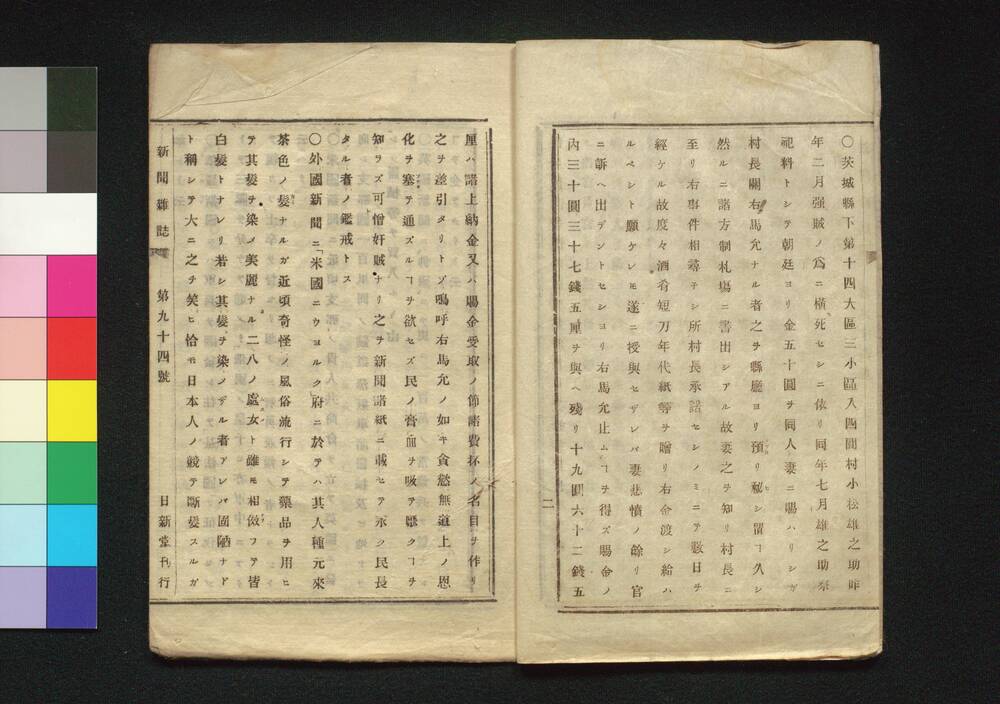 〇茨城縣下第十四大區三小區入四間村小松雄之助昨
年二月强賊ノ爲ニ橫死セシニ依リ同年七月雄之助祭
祀料トシテ朝廷ヨリ金五十圓ヲ同人妻ニ賜ハリシガ
村長關右馬允ナル者之ヲ縣廳ヨリ預リ秘シ留ヿ久シ
然ルニ諸方制札塲ニ書出シアル故妻之ヲ知リ村長ニ
至リ右事件相尋子シ所村長承諾セシノミニテ數日ヲ
經ケル故度々酒肴短刀年代紙等ヲ贈リ右金渡シ給ハ
ルベシト願ケレ𪜈遂ニ授與セザレバ妻悲憤ノ餘リ官
ニ訴ヘ出デントセシヨリ右馬允止ムヿヲ得ズ賜金ノ
內三十圓三十七錢五厘ヲ與ヘ殘リ十九圓六十二錢五
二
厘ハ諸上納金又ハ賜金受取ノ節諸費抔ノ名目ヲ作リ
之ヲ差引タリトゾ嗚呼右馬允ノ如キ貪慾無道上ノ恩
化ヲ塞テ通ズルヿヲ欲セズ民ノ膏血ヲ吸テ懕クヿヲ
知ラズ可憎奸賊ナリ之ヲ新聞諸紙ニ載セテ永ク民長
タル者ノ鑑戒トス
〇外國新聞ニ「米國ニウヨルク」府ニ於テハ其人種元來
茶色ノ髮ナルガ近頃奇怪ノ風俗流行シテ藥品ヲ用ヒ
テ其髮ヲ染メ美麗ナル二八ノ處女ト雖𪜈相傚フテ皆
白髮トナレリ若シ其髮ヲ染メザル者アレバ固陋ナド
ト稱シテ大ニ之ヲ笑ヒ恰モ日本人ノ競テ斷髮スルガ
新聞雜誌 第九十四號 日新堂刊行